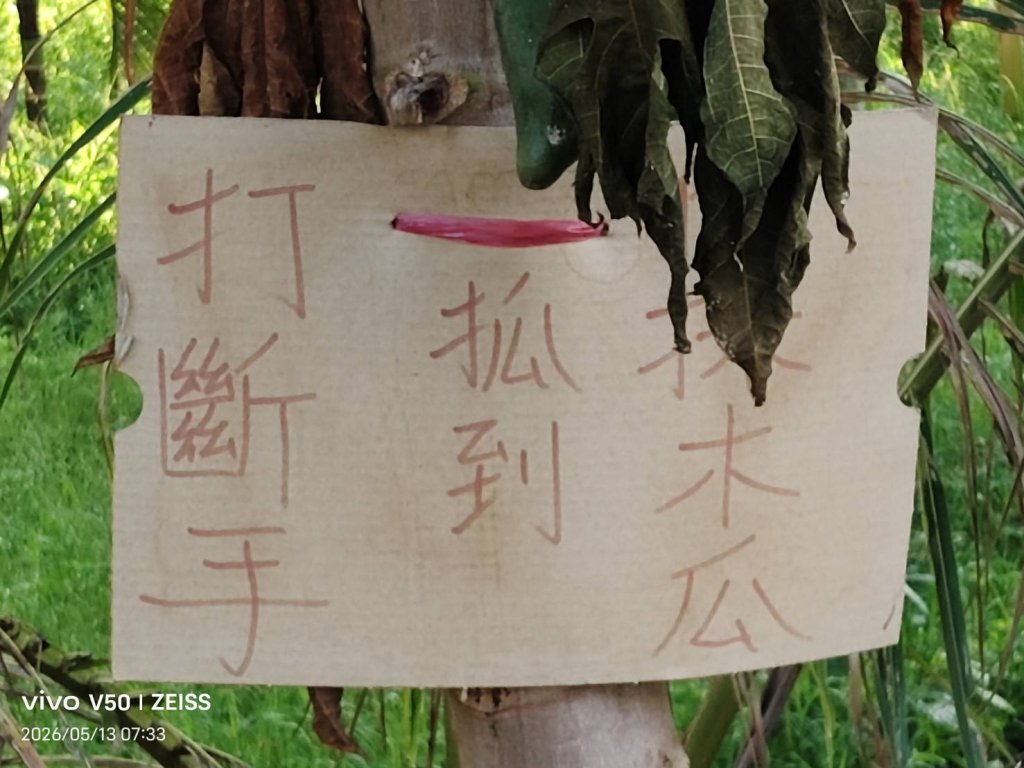 木瓜
㧓到
打斷手
vivo V50 | ZEISS
2026/05/13 07:33